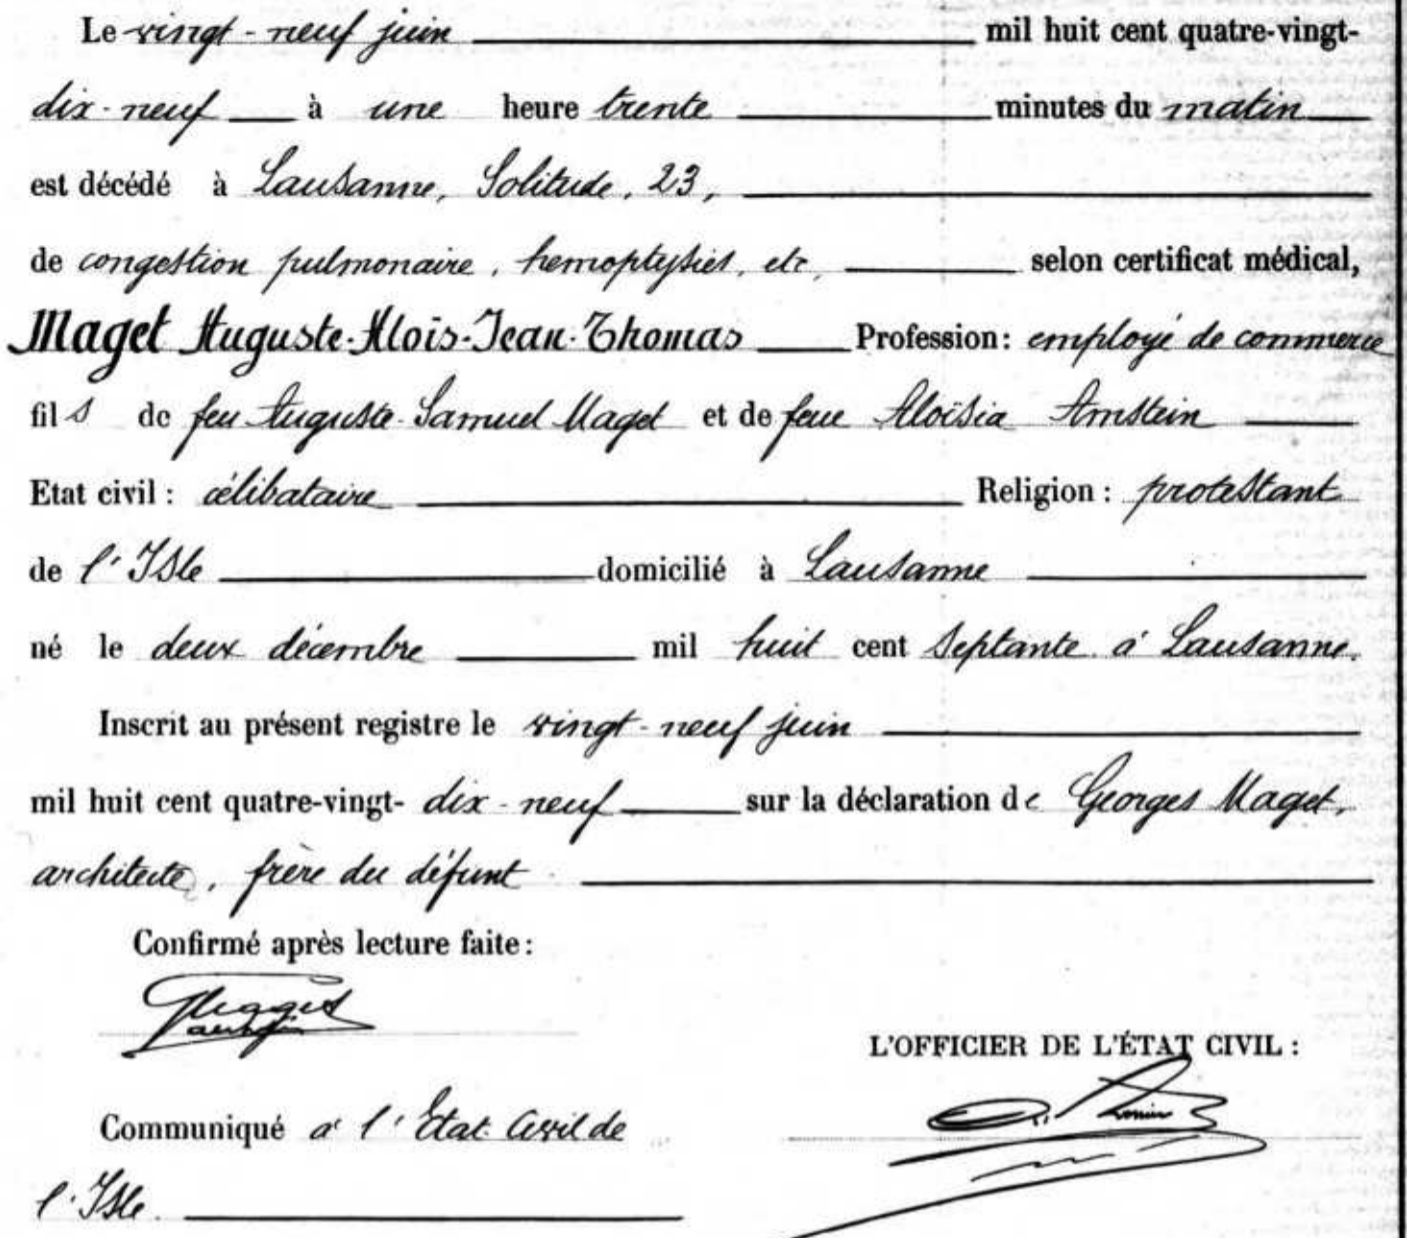 Le vingt-neuf juin mil huit cent quatre-vingt-
dix-neuf à une heure trente minutes du matin
est décédé à Lausanne, Solitude, 23,
de congestion pulmonaire, hemoptysies, etc, selon certificat médical,
Maget Auguste-Aloïs-Jean-Thomas Profession: employé de commerce
fils de feu Auguste-Samuel Maget et de feue Aloïsia Amstein
Etat civil: célibataire Religion: protestant
de l'Isle domicilié à Lausanne
né le deux décembre mil huit cent septante à Lausanne.
Inscrit au présent registre le vingt-neuf juin
mil huit cent quatre-vingt-dix-neuf sur la déclaration de Georges Maget,
architecte, frère du défunt
Confirmé après lecture faite:
L'OFFICIER DE L'ÉTAT CIVIL:
Communiqué à l'Etat Civil de
l'Isle.